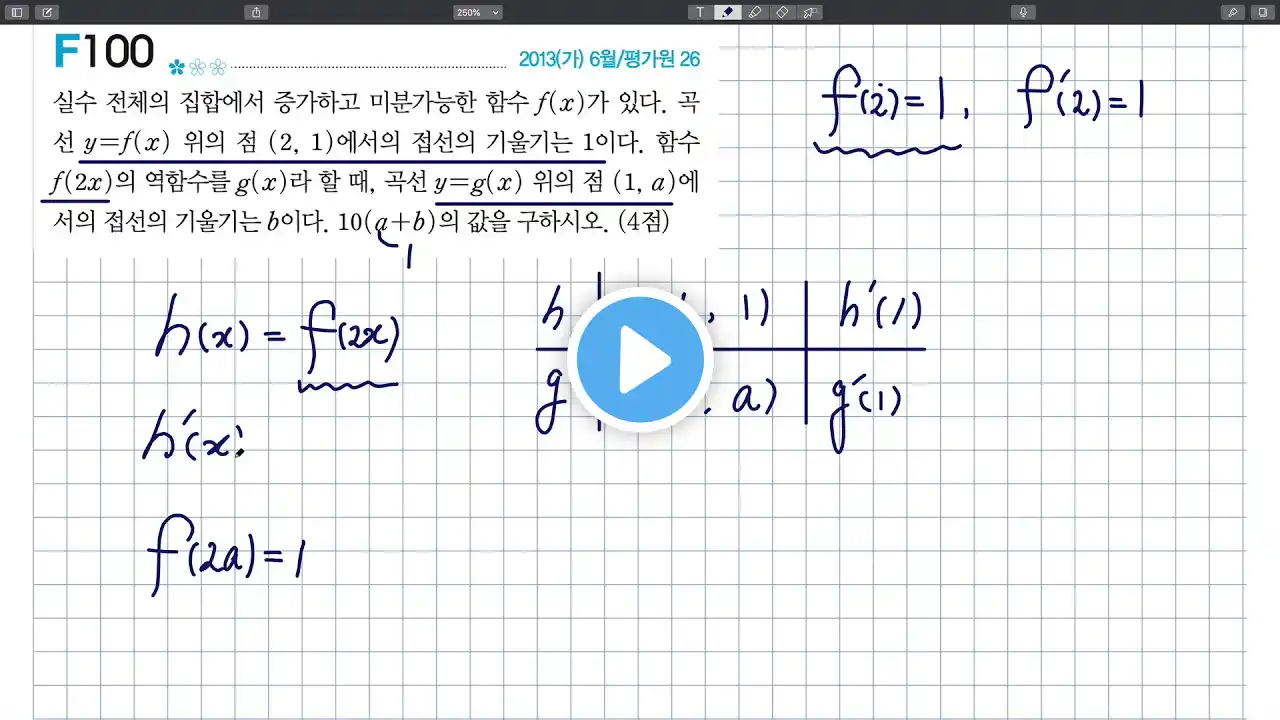 250%
T
F100
2013(가) 6월/평가원 26
실수 전체의 집합에서 증가하고 미분가능한 함수 f(x)가 있다. 곡
선 y=f(x) 위의 점 (2, 1)에서의 접선의 기울기는 1이다. 함수
f(2x)의 역함수를 g(x)라 할 때, 곡선 y=g(x) 위의 점 (1, a)에
서의 접선의 기울기는 b이다. 10(a+b)의 값을 구하시오. (4점)
1
f(2)=1, f'(2)=1
h(x) = f(2x)
h'(x)
f(2a)=1
h , 1) h'(1)
g , a) g'(1)